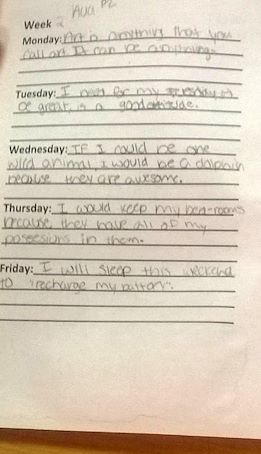 Aua P2
Week 2
Monday: Art is anything that you
call art It can be anything.
Tuesday: I need for my to
be great, is a good attitude.
Wednesday: If I could be one
wild animal, I would be a dolphin
because they are awesome.
Thursday: I would keep my bed-rooms
because they have all of my
possesions in them.
Friday: I will sleep this weekend
to "recharge my battery".